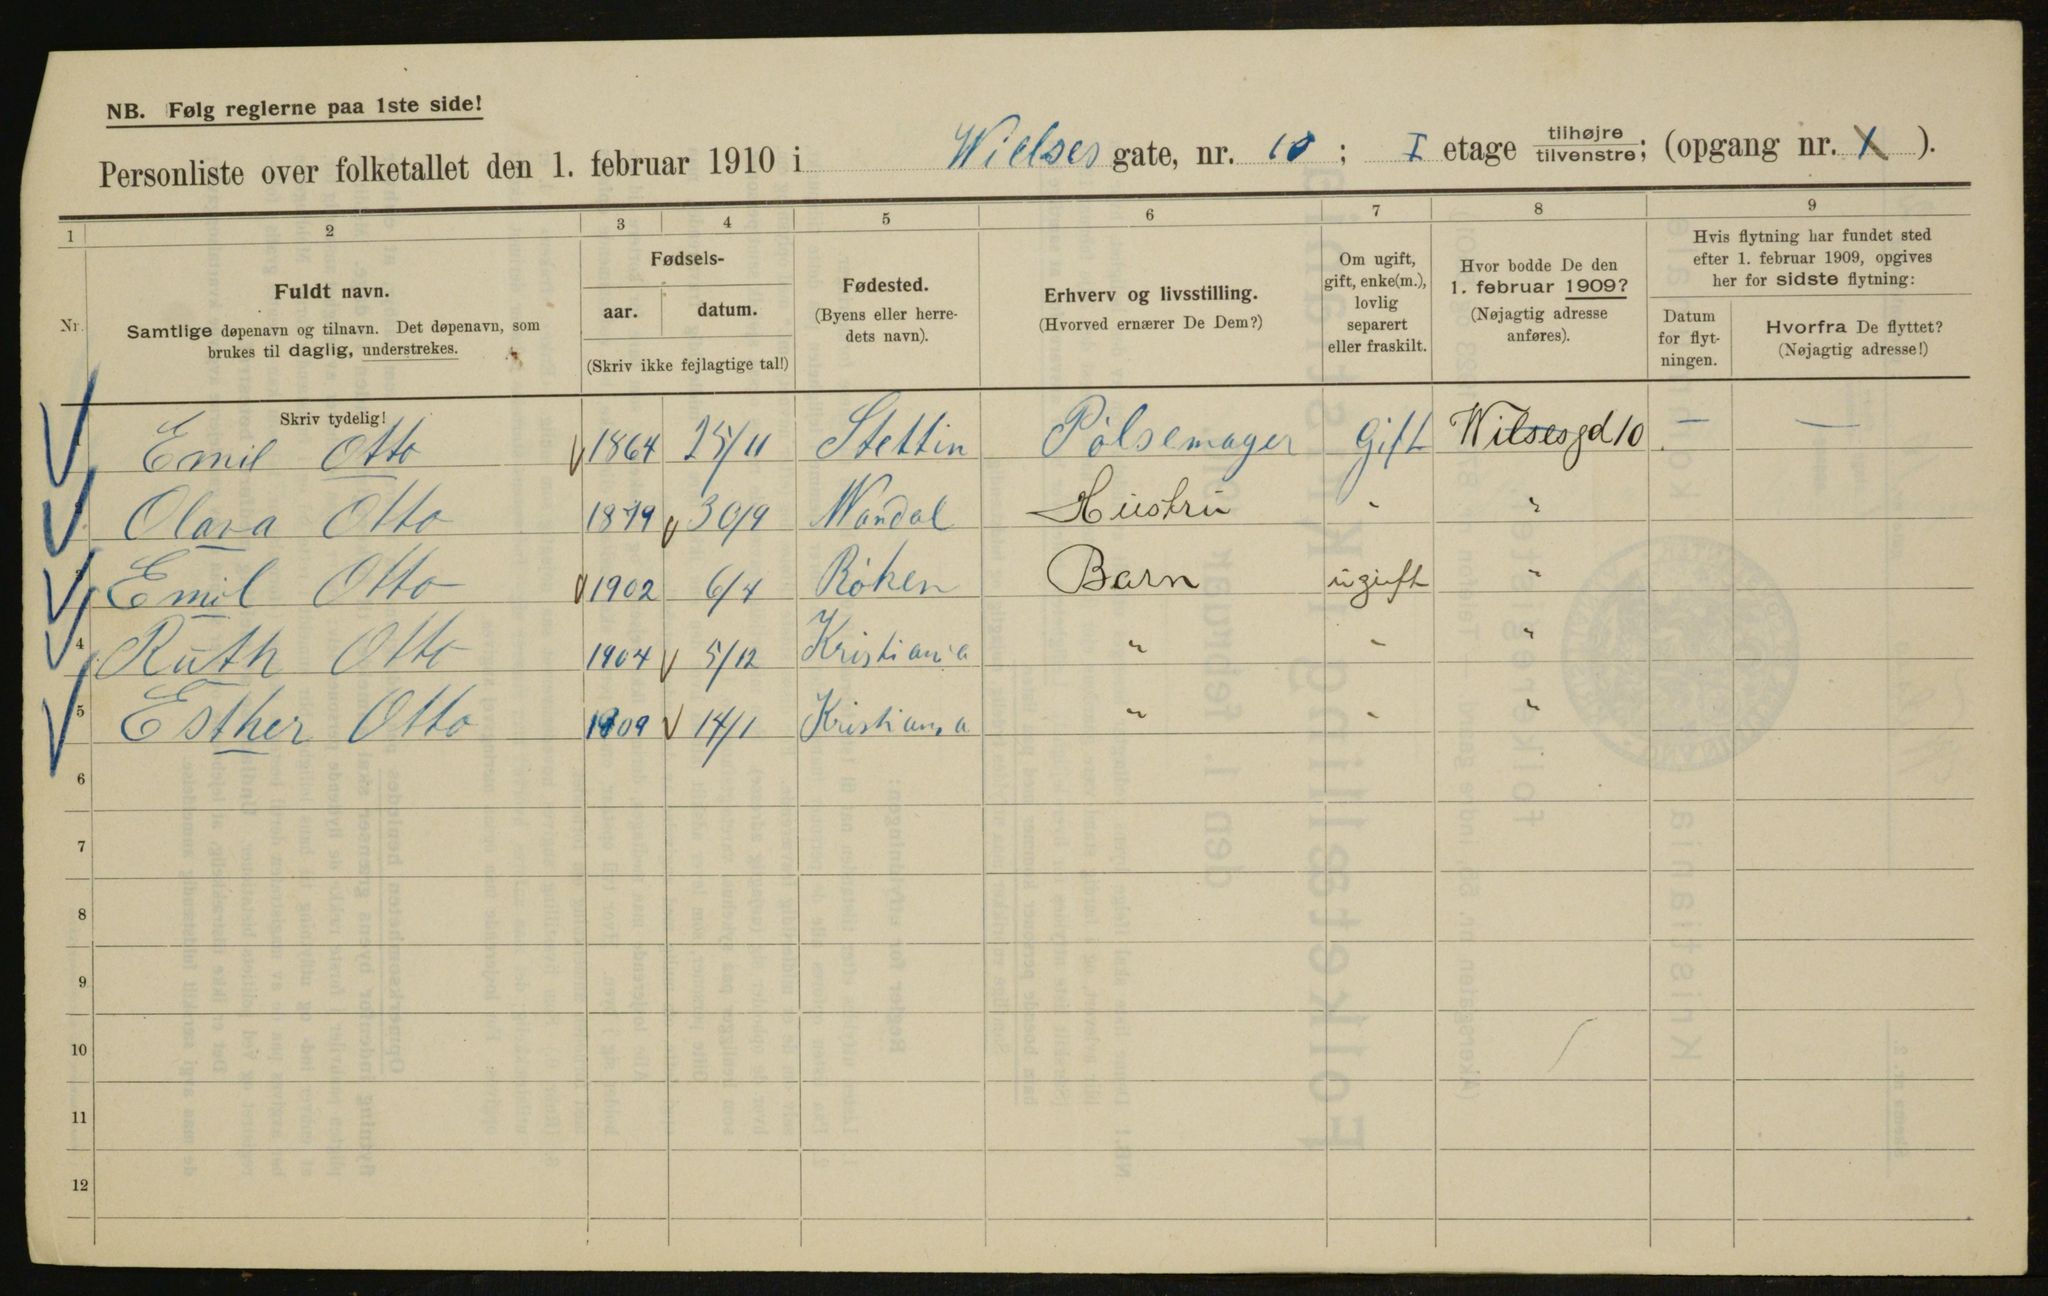 NB. Følg reglerne paa 1ste side!
Personliste over folketallet den 1. februar 1910 i Wielses gate, nr. 10 ; I etage tilhøjre / tilvenstre; (opgang nr. X ).
1 2 3 4 5 6 7 8 9
Nr.
Fuldt navn.
Samtlige døpenavn og tilnavn. Det døpenavn, som
brukes til daglig, understrekes.
Fødsels-
aar. datum.
(Skriv ikke fejlagtige tal!)
Fødested.
(Byens eller herre-
dets navn).
Erhverv og livsstilling.
(Hvorved ernærer De Dem?)
Om ugift,
gift, enke(m.),
lovlig
separert
eller fraskilt.
Hvor bodde De den
1. februar 1909?
(Nøjagtig adresse
anføres).
Hvis flytning har fundet sted
efter 1. februar 1909, opgives
her for sidste flytning:
Datum
for flyt-
ningen.
Hvorfra De flyttet?
(Nøjagtig adresse!)
Skriv tydelig!
Emil Otto 1864 25/11 Stettin Pølsemager Gift Wilsesgd 10 — —
Olava Otto 1879 30/9 Wandal Hustru " "
3 Emil Otto 1902 6/4 Røken Barn ugift "
4 Ruth Otto 1904 5/12 Kristiania " " "
5 Esther Otto 1909 14/1 Kristiania " " "
6
7
8
9
10
11
12